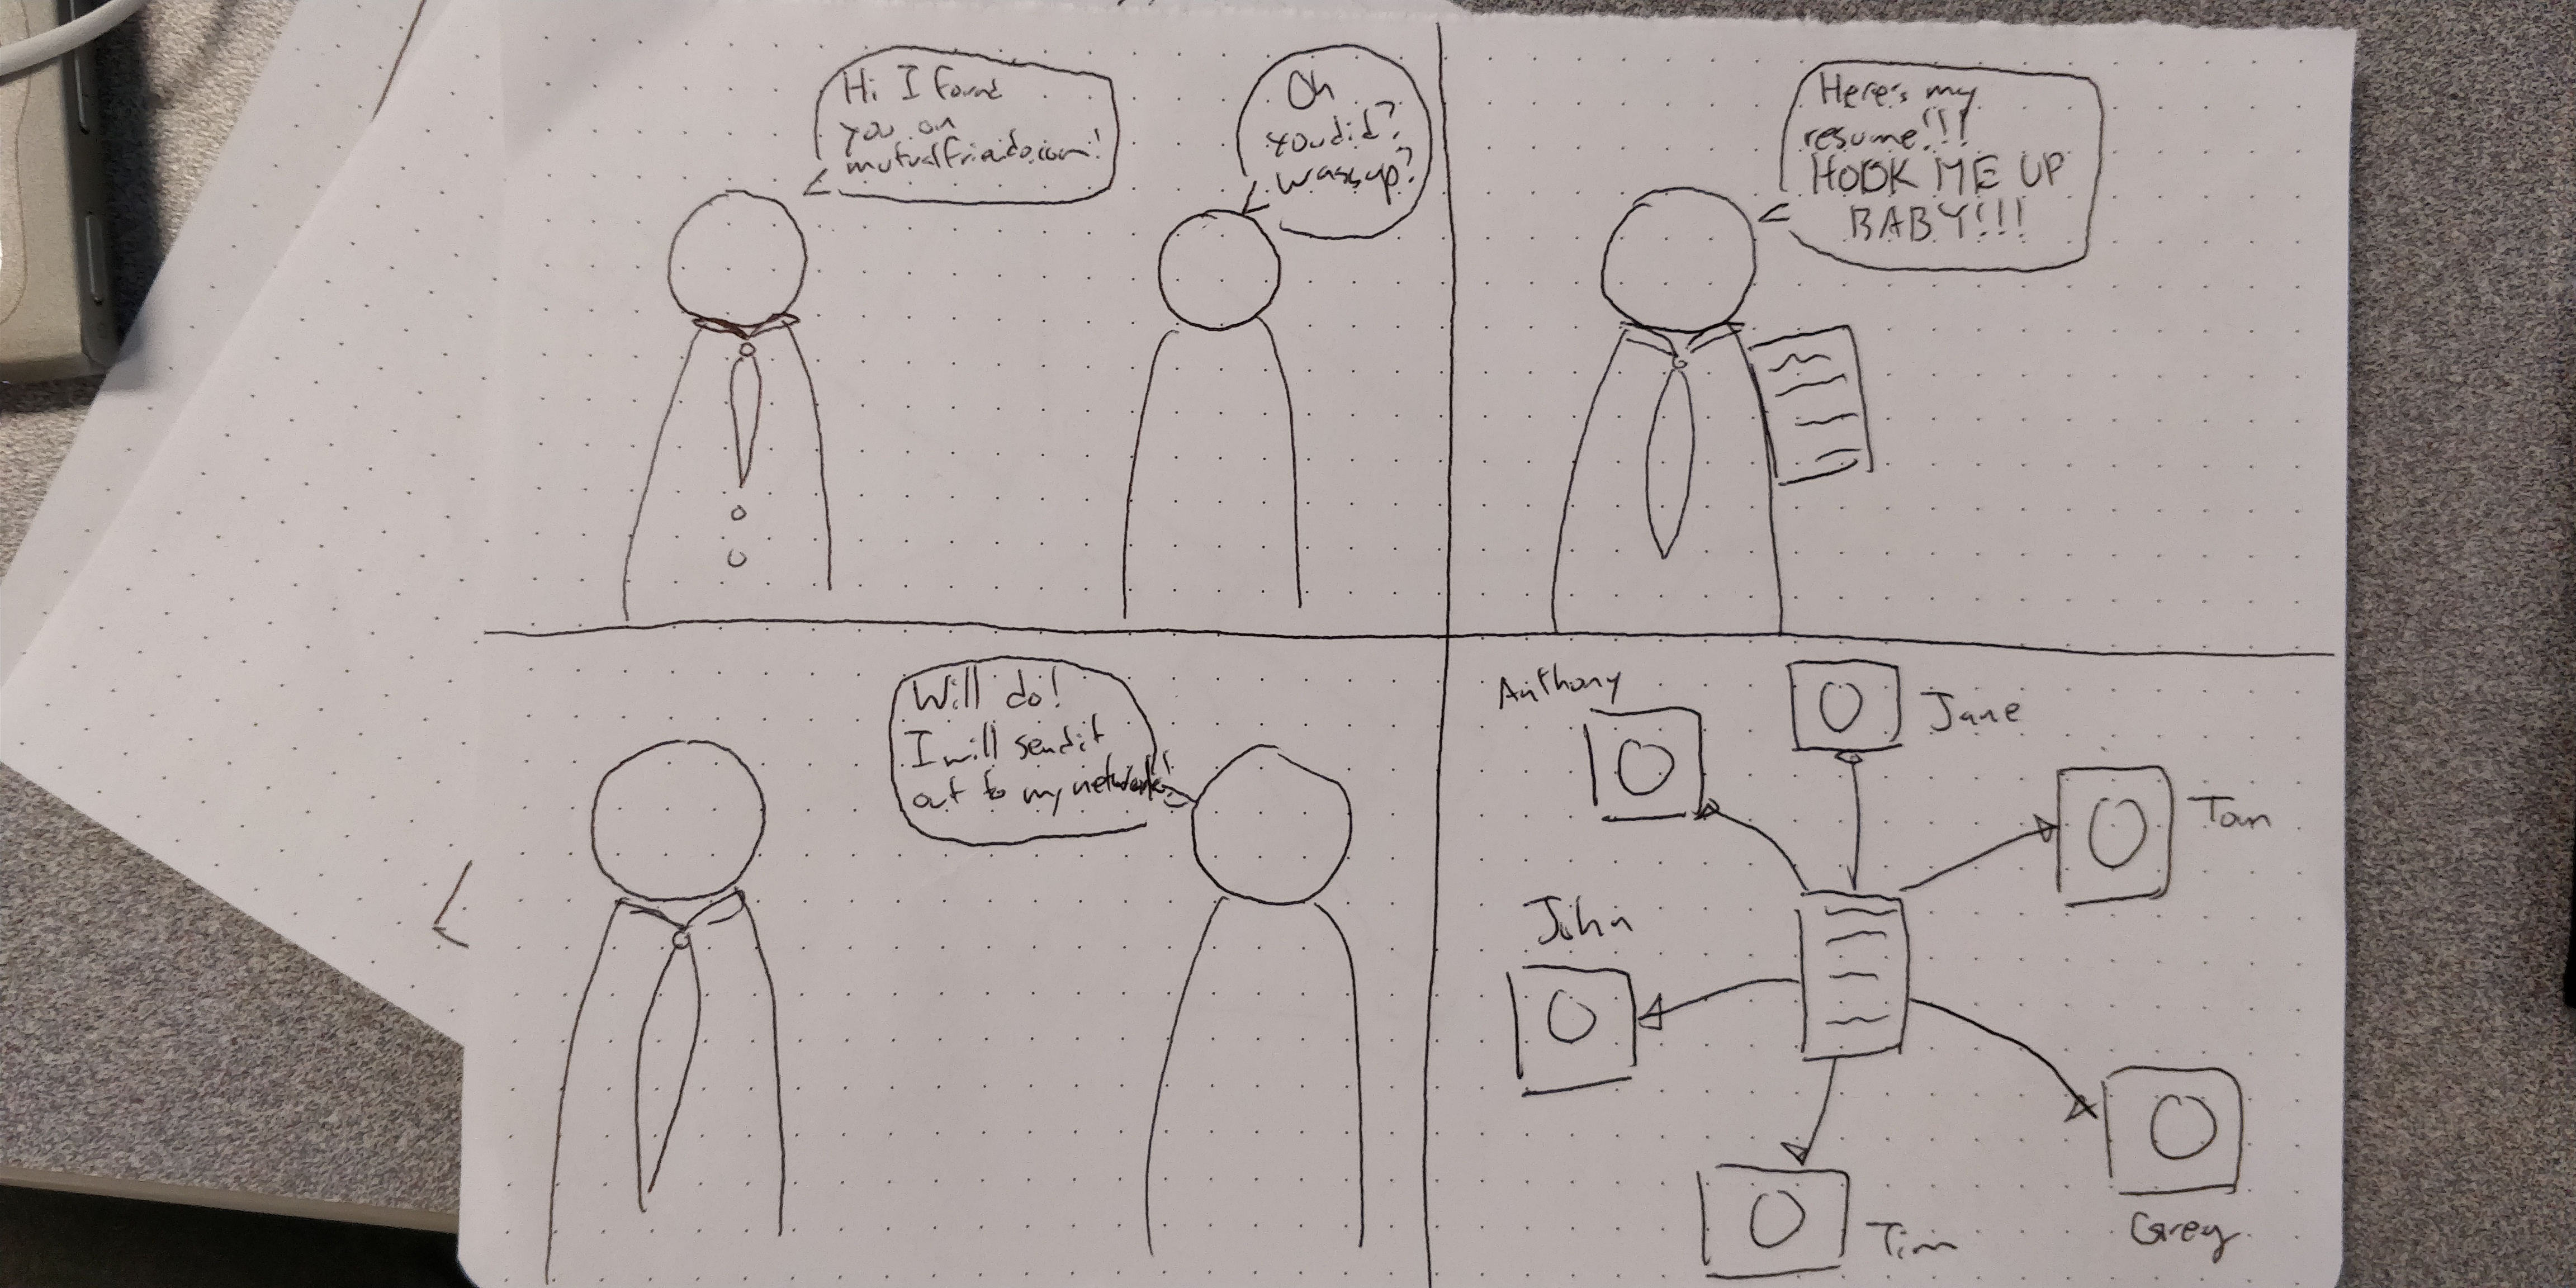 Hi I found
you on
mutualfriends.com!
Oh
you did?
wassup?
Here's my
resume!!!
HOOK ME UP
BABY!!!
Will do!
I will send it
out to my network!
Anthony
Jane
Tom
John
Tim
Greg